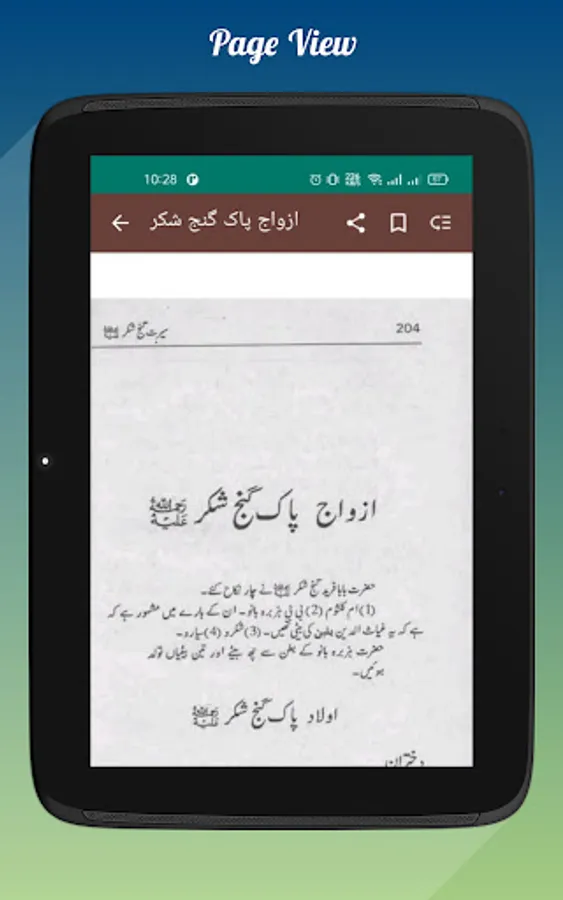 Page View
10:28
ازواج پاک گنج شکر
سیرت گنج شکر رحمۃ اللہ علیہ 204
ازواج پاک گنج شکر رَحمَۃُ اللہِ عَلَیْہ
حضرت بابا فرید گنج شکر نے چار نکاح کئے۔
(1) ام کلثوم (2) بی بی ہزبرہ بانو۔ ان کے بارے میں مشہور ہے کہ
ہے کہ یہ غیاث الدین بلبن کی بیٹی تھیں۔ (3) شکرو (4) سارو۔
حضرت ہزبرہ بانو کے بطن سے چھ بیٹے اور تین بیٹیاں تولد
ہوئیں۔
اولاد پاک گنج شکر رَحمَۃُ اللہِ عَلَیْہ
دختران